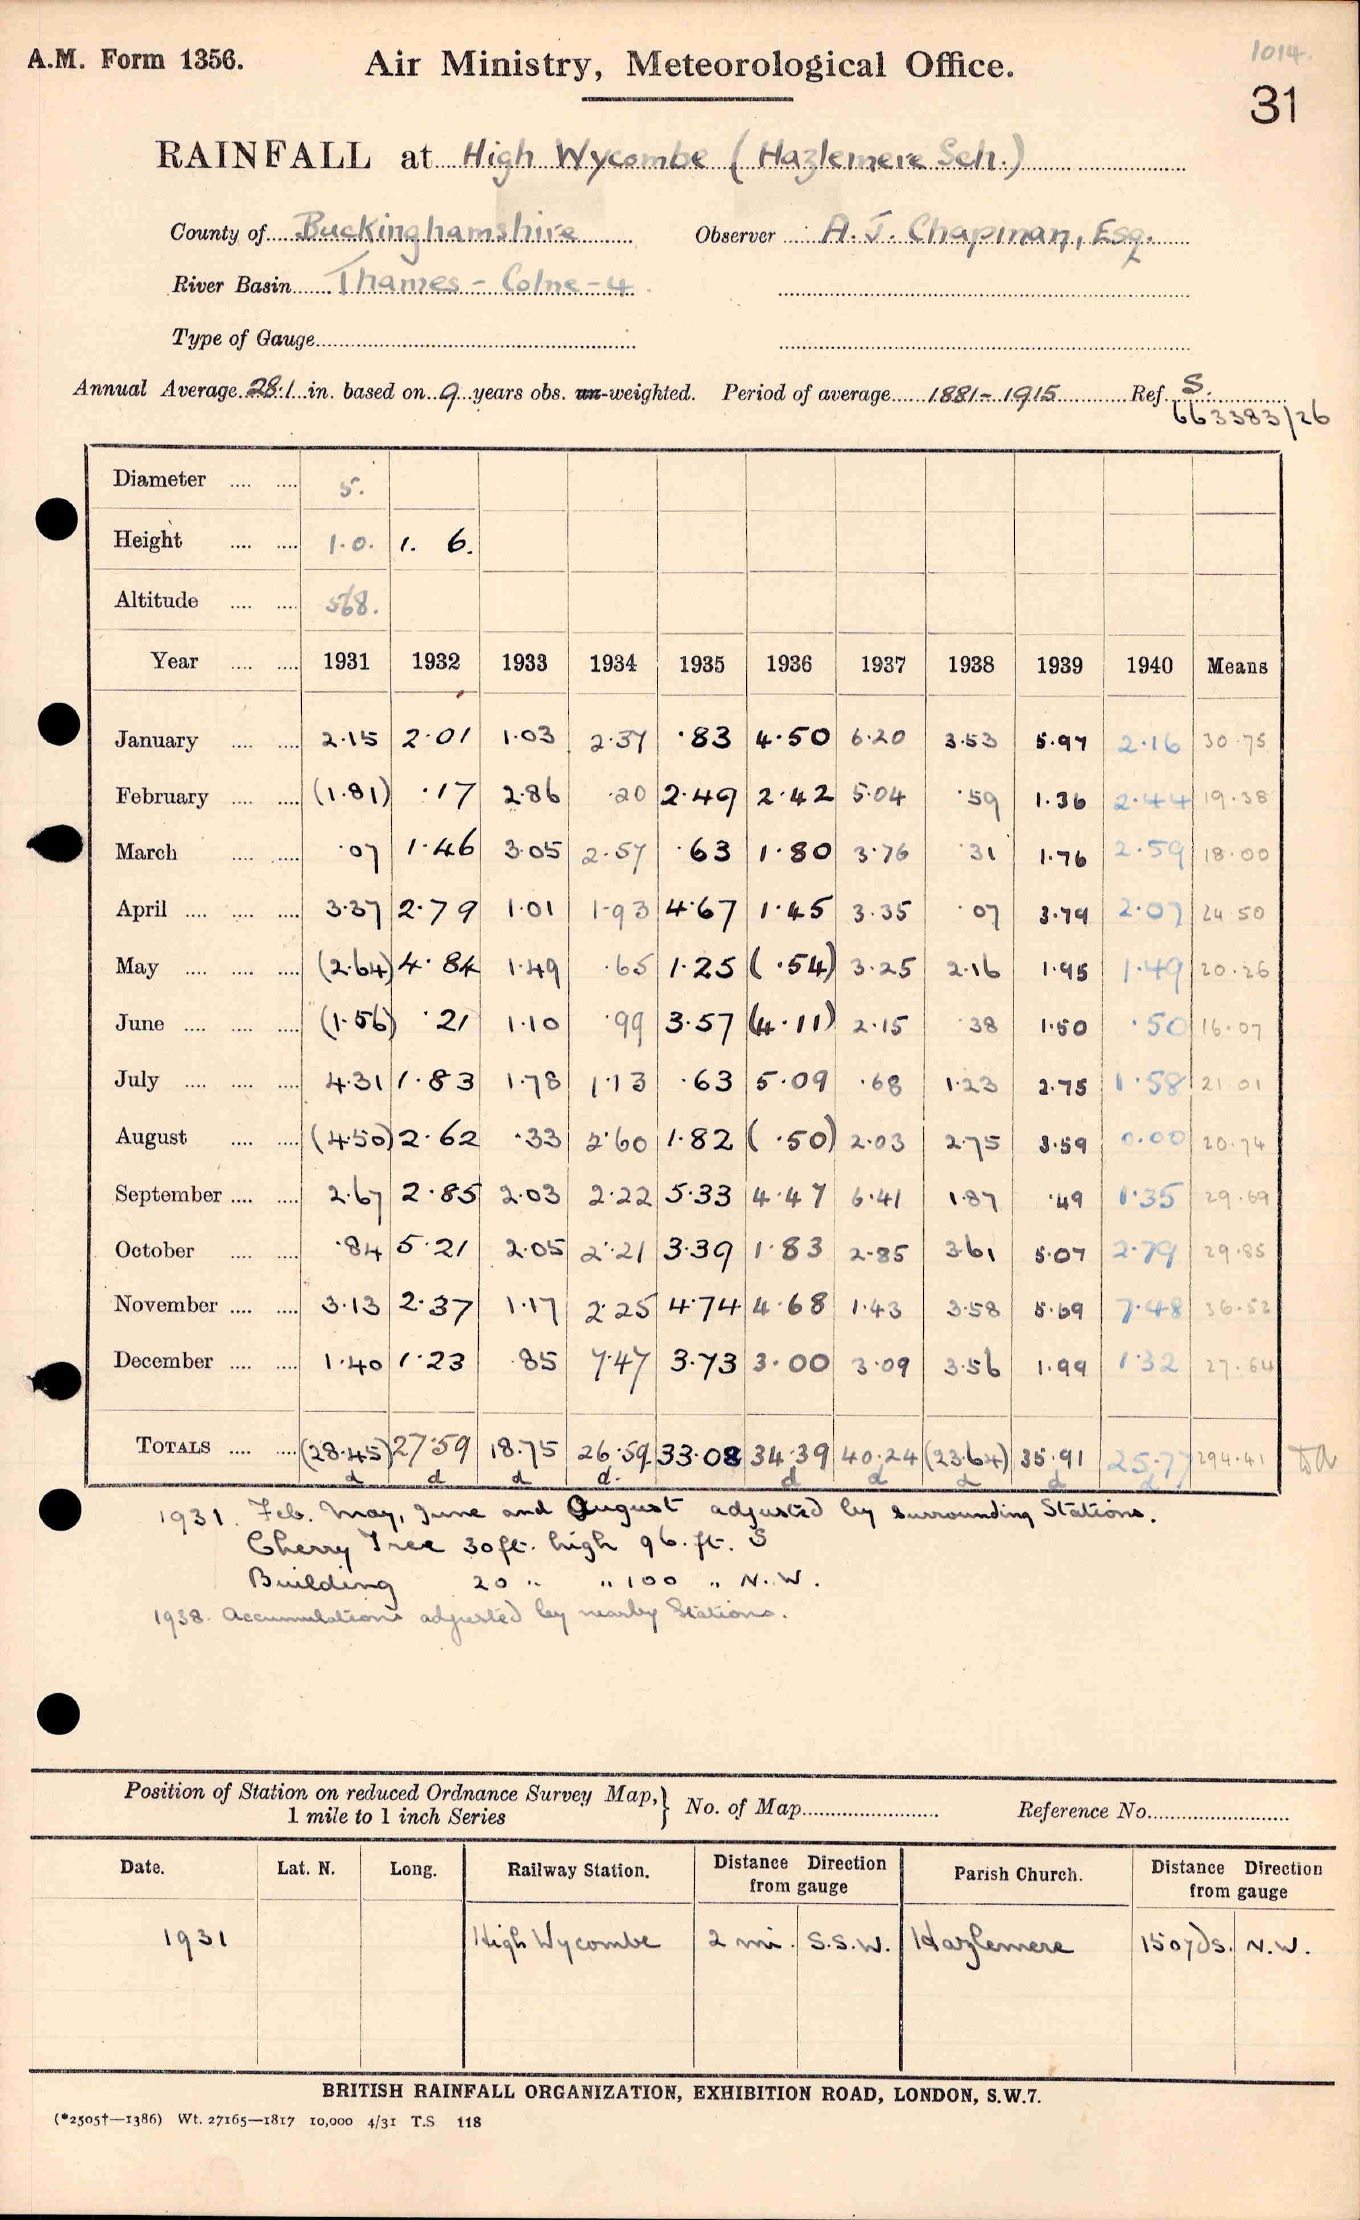 A.M. Form 1356. Air Ministry, Meteorological Office. 1014.
31
RAINFALL at High Wycombe (Hazlemere Sch.)
County of Buckinghamshire Observer A. J. Chapman, Esq.
River Basin Thames - Colne - 4
Type of Gauge
Annual Average 28.1 in. based on 9 years obs. un-weighted. Period of average 1881-1915 Ref. S.
663383/26
Diameter 5.
Height 1.0. 1. 6.
Altitude 568.
Year 1931 1932 1933 1934 1935 1936 1937 1938 1939 1940 Means
January 2.15 2.01 1.03 2.37 .83 4.50 6.20 3.53 5.97 2.16 30.75
February (1.81) .17 2.86 .20 2.49 2.42 5.04 .59 1.36 2.44 19.38
March .07 1.46 3.05 2.57 .63 1.80 3.76 .31 1.76 2.59 18.00
April 3.37 2.79 1.01 1.93 4.67 1.45 3.35 .07 3.79 2.07 24.50
May (2.64) 4.84 1.49 .65 1.25 (.54) 3.25 2.16 1.95 1.49 20.26
June (1.56) .21 1.10 .99 3.57 (4.11) 2.15 .38 1.50 .50 16.07
July 4.31 1.83 1.78 1.13 .63 5.09 .68 1.23 2.75 1.58 21.01
August (4.50) 2.62 .33 2.60 1.82 (.50) 2.03 2.75 3.59 0.00 20.74
September 2.67 2.85 2.03 2.22 5.33 4.47 6.41 1.87 .49 1.35 29.69
October .84 5.21 2.05 2.21 3.39 1.83 2.85 3.61 5.07 2.79 29.85
November 3.13 2.37 1.17 2.25 4.74 4.68 1.43 3.58 5.69 7.48 36.52
December 1.40 1.23 .85 7.47 3.73 3.00 3.09 3.56 1.99 1.32 27.64
TOTALS (28.45) 27.59 18.75 26.59 33.08 34.39 40.24 (23.64) 35.91 25.77 294.41
d d d d. d d d d d
1931. Feb. May, June and August adjusted by surrounding Stations.
Cherry Tree 30ft. high 96.ft. S
Building 20 " " 100 " N.W.
1938. Accumulations adjusted by nearby Stations.
Position of Station on reduced Ordnance Survey Map, } No. of Map Reference No.
1 mile to 1 inch Series
Date. Lat. N. Long. Railway Station. Distance Direction from gauge Parish Church. Distance Direction from gauge
1931 High Wycombe 2 mi. S.S.W. Hazlemere 150yds. N.W.
BRITISH RAINFALL ORGANIZATION, EXHIBITION ROAD, LONDON, S.W.7.
(*2505†—1386) Wt. 27165—1817 10,000 4/31 T.S 118